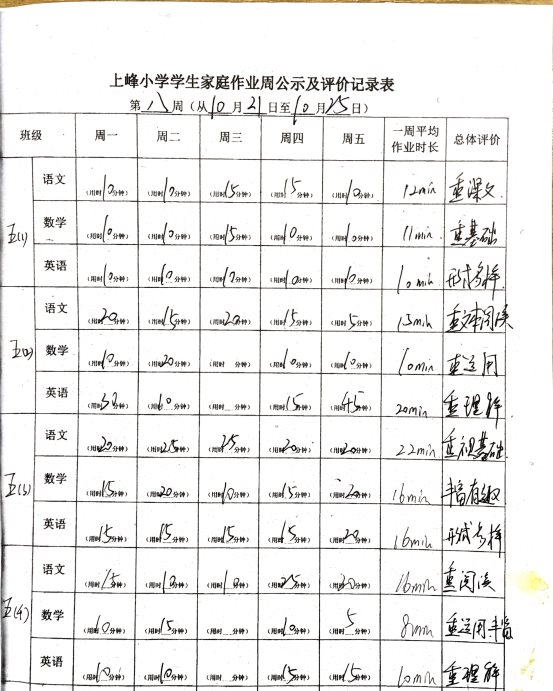 上峰小学学生家庭作业周公示及评价记录表
第 八 周（从 10 月 21 日至 10 月 25 日）
班级 周一 周二 周三 周四 周五 一周平均作业时长 总体评价
五(1) 语文 （用时10分钟） （用时10分钟） （用时15分钟） （用时15分钟） （用时10分钟） 12min 重课文
数学 （用时10分钟） （用时10分钟） （用时15分钟） （用时10分钟） （用时10分钟） 11min 重基础
英语 （用时10分钟） （用时10分钟） （用时10分钟） （用时10分钟） （用时10分钟） 10min 形式多样
五(2) 语文 （用时20分钟） （用时15分钟） （用时20分钟） （用时15分钟） （用时5分钟） 15min 重文本阅读
数学 （用时10分钟） （用时20分钟） （用时 分钟） （用时10分钟） （用时10分钟） 10min 重运用
英语 （用时30分钟） （用时10分钟） （用时 分钟） （用时15分钟） （用时45分钟） 20min 重理解
五(3) 语文 （用时20分钟） （用时25分钟） （用时25分钟） （用时20分钟） （用时20分钟） 22min 重视基础
数学 （用时15分钟） （用时20分钟） （用时10分钟） （用时15分钟） （用时20分钟） 16min 丰富有趣
英语 （用时15分钟） （用时15分钟） （用时15分钟） （用时15分钟） （用时20分钟） 16min 形式多样
五(4) 语文 （用时15分钟） （用时10分钟） （用时10分钟） （用时25分钟） （用时20分钟） 16min 重阅读
数学 （用时10分钟） （用时15分钟） （用时 分钟） （用时10分钟） （用时5分钟） 8min 重运用丰富
英语 （用时10分钟） （用时10分钟） （用时 分钟） （用时15分钟） （用时15分钟） 10min 重理解